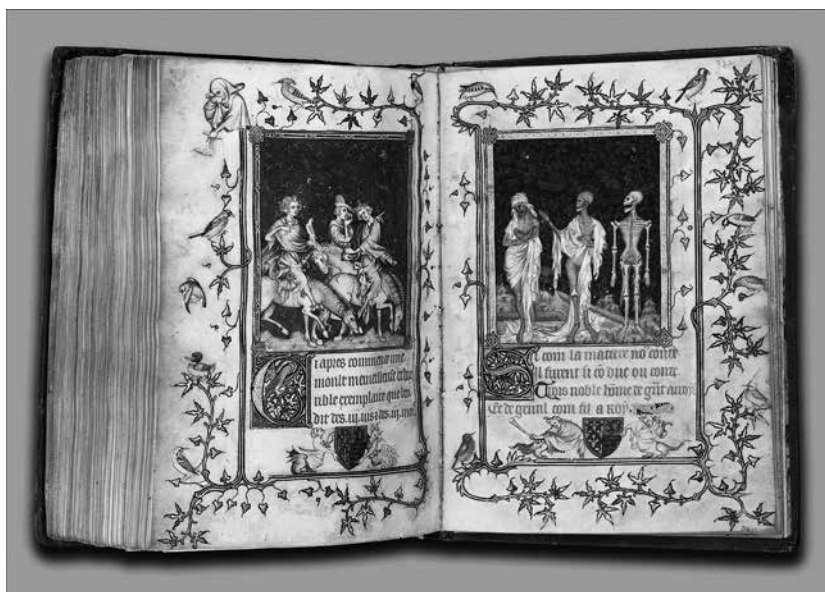 Ci apres commence une
moult merveilleuse et hor
rible exemplaire que len
dit des .iij. vis z des .iij.
Si com la matiere no9 conte
Il furent si cō duc ou conte
Trois noble hōme de grāt arroy
Et de gentil com fil a Roy